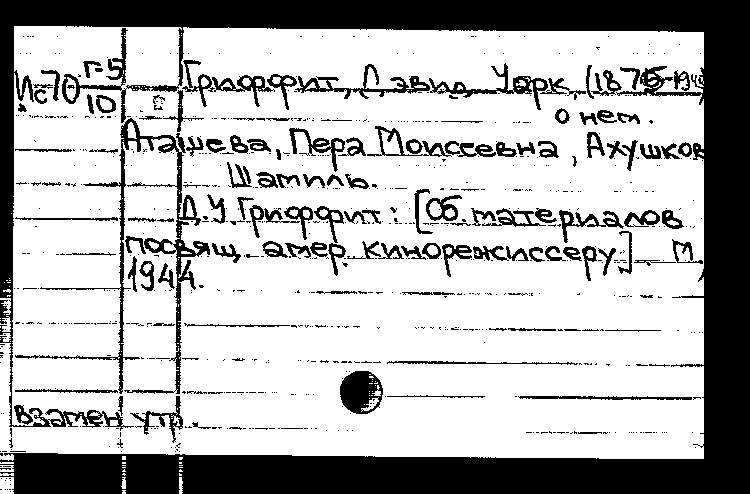 Ис70 Г-5/10
Гриффит, Дэвид Уорк, (1875-1948)
о нем.
Аташева, Пера Моисеевна, Ахушков
Шамиль.
Д.У. Гриффит: [Сб. материалов
посвящ. амер. кинорежиссеру]. М.,
1944.
взамен утр.